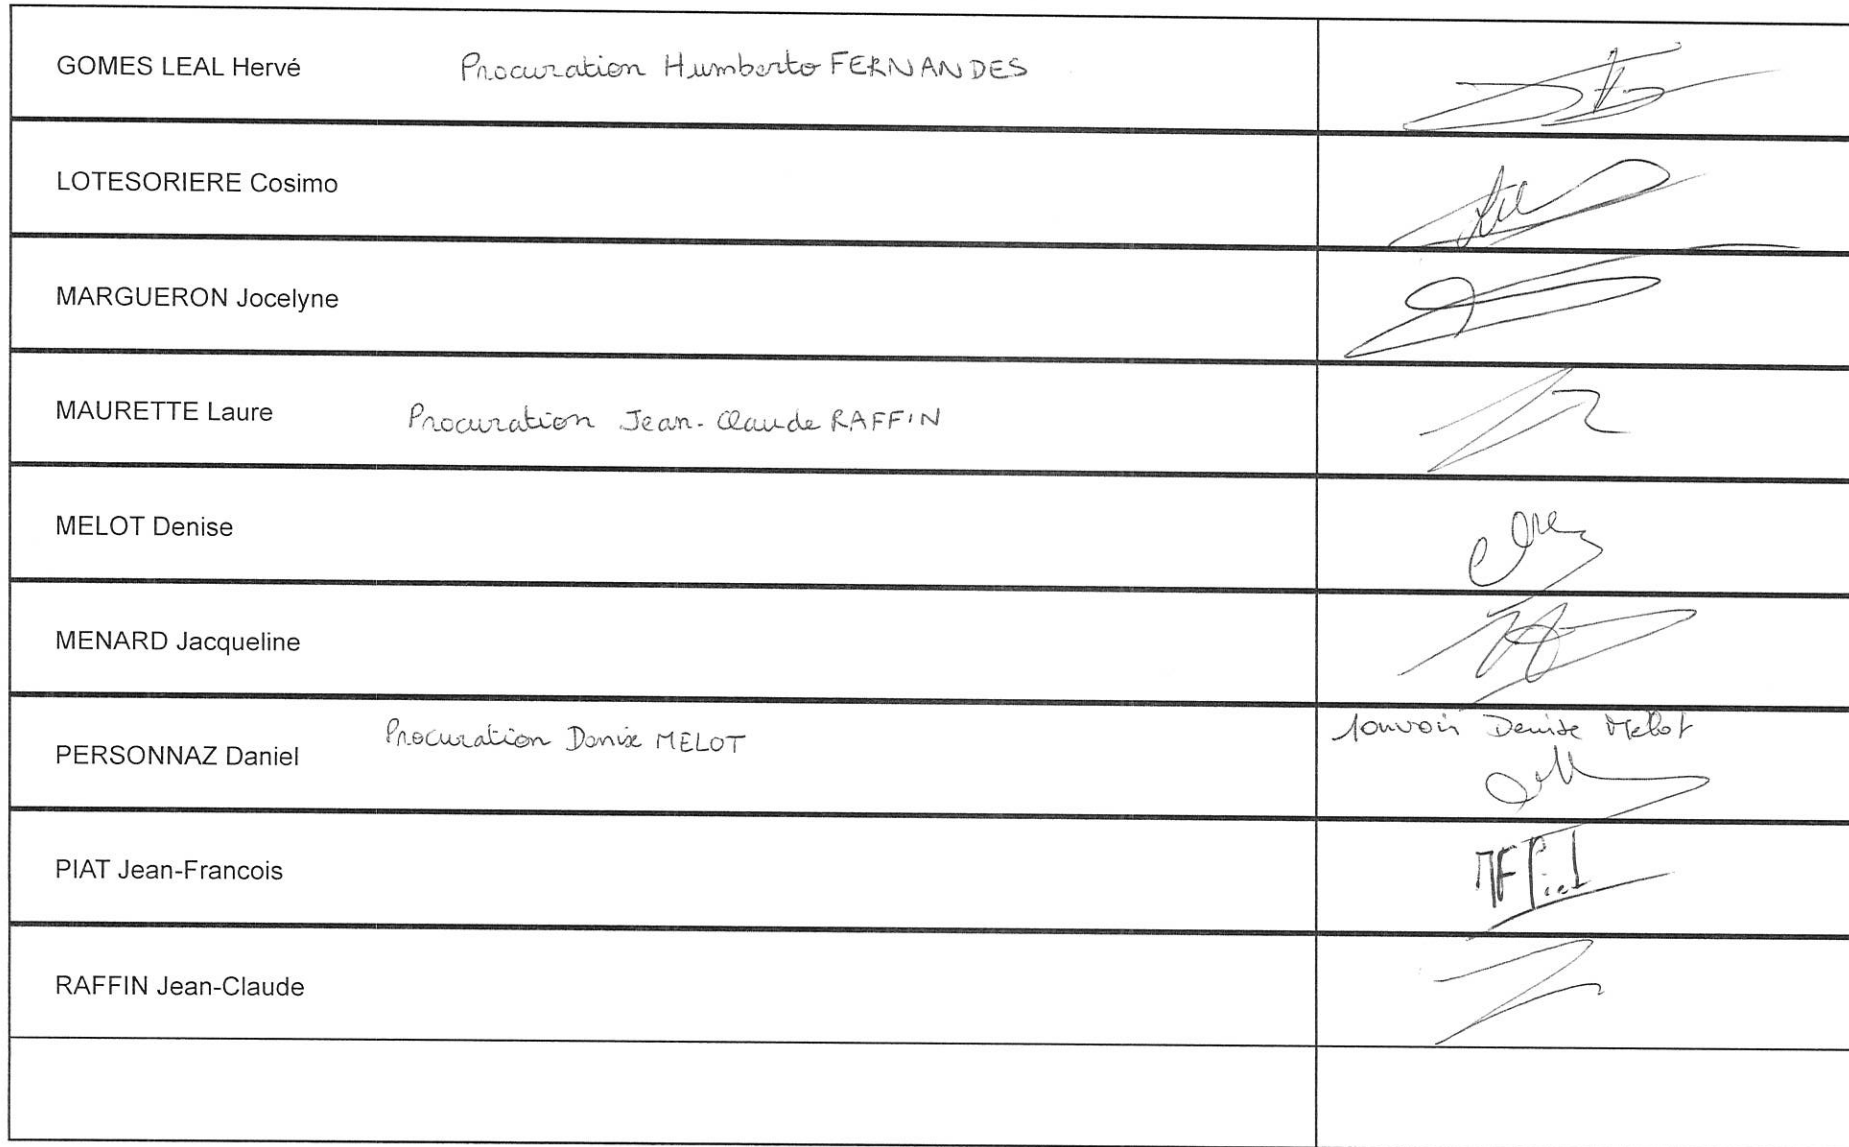 GOMES LEAL Hervé Procuration Humberto FERNANDES
LOTESORIERE Cosimo
MARGUERON Jocelyne
MAURETTE Laure Procuration Jean-Claude RAFFIN
MELOT Denise
MENARD Jacqueline
Procuration Denise MELOT Pouvoir Denise Melot
PERSONNAZ Daniel
PIAT Jean-Francois JF Piat
RAFFIN Jean-Claude